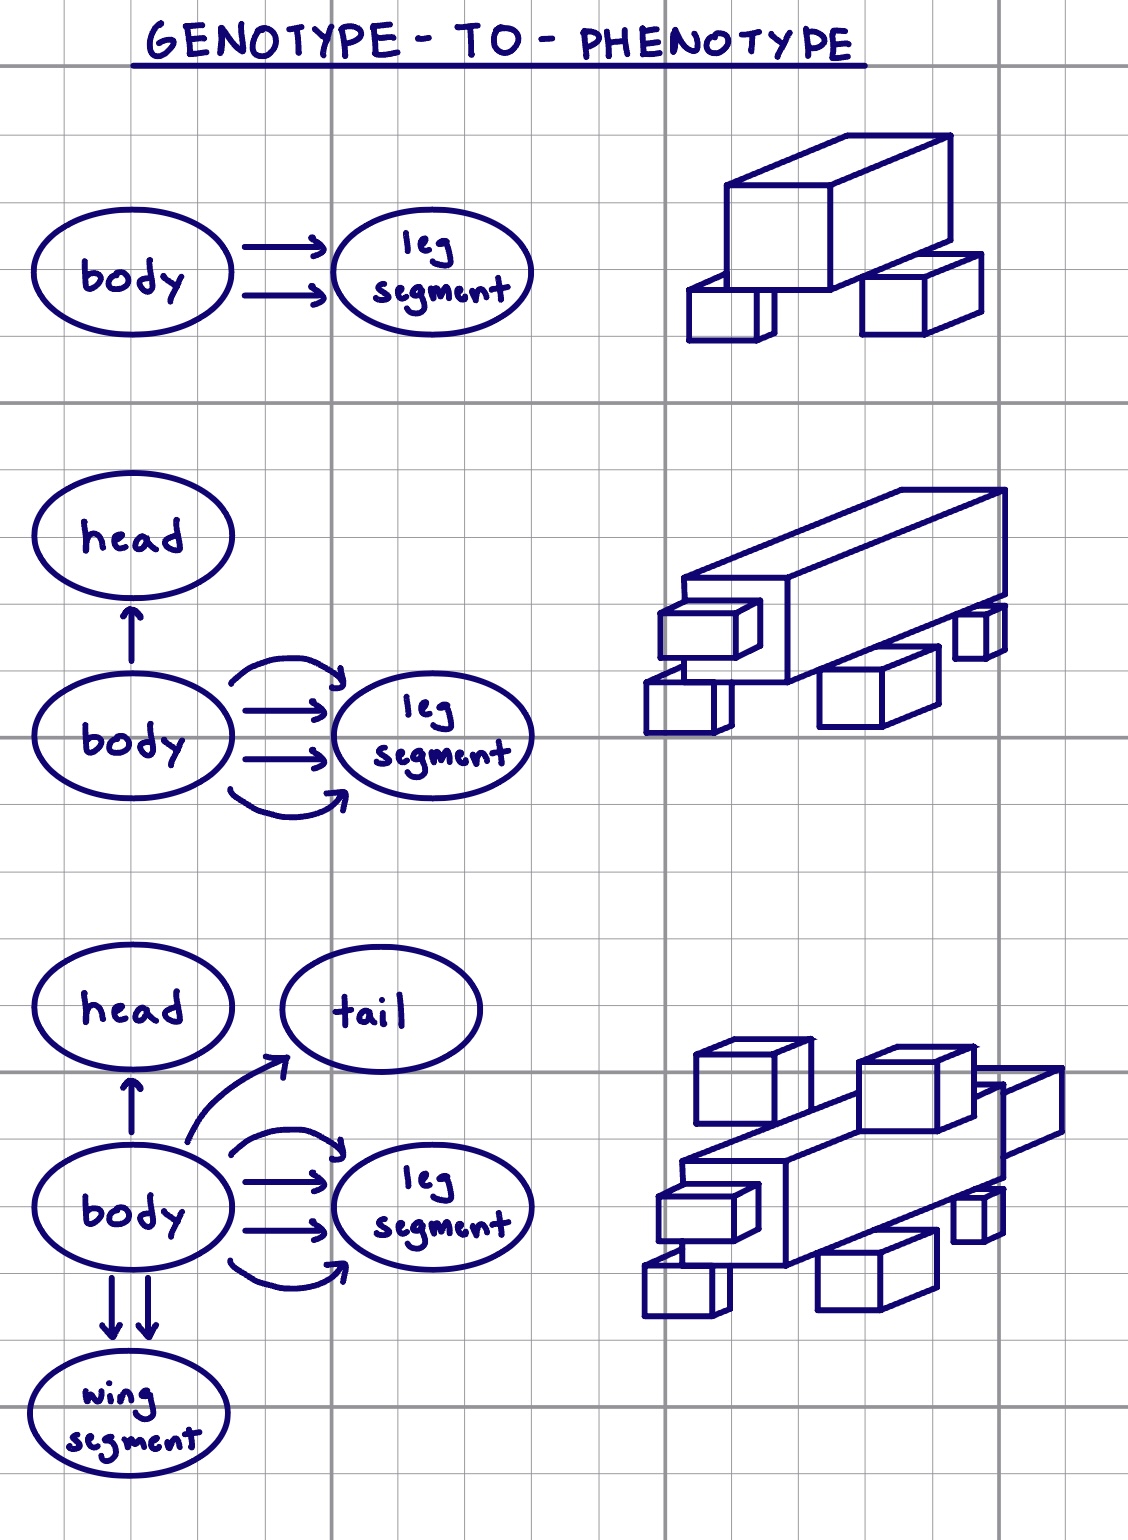 GENOTYPE - TO - PHENOTYPE
body
leg
segment
head
body
leg
segment
head
tail
body
leg
segment
wing
segment